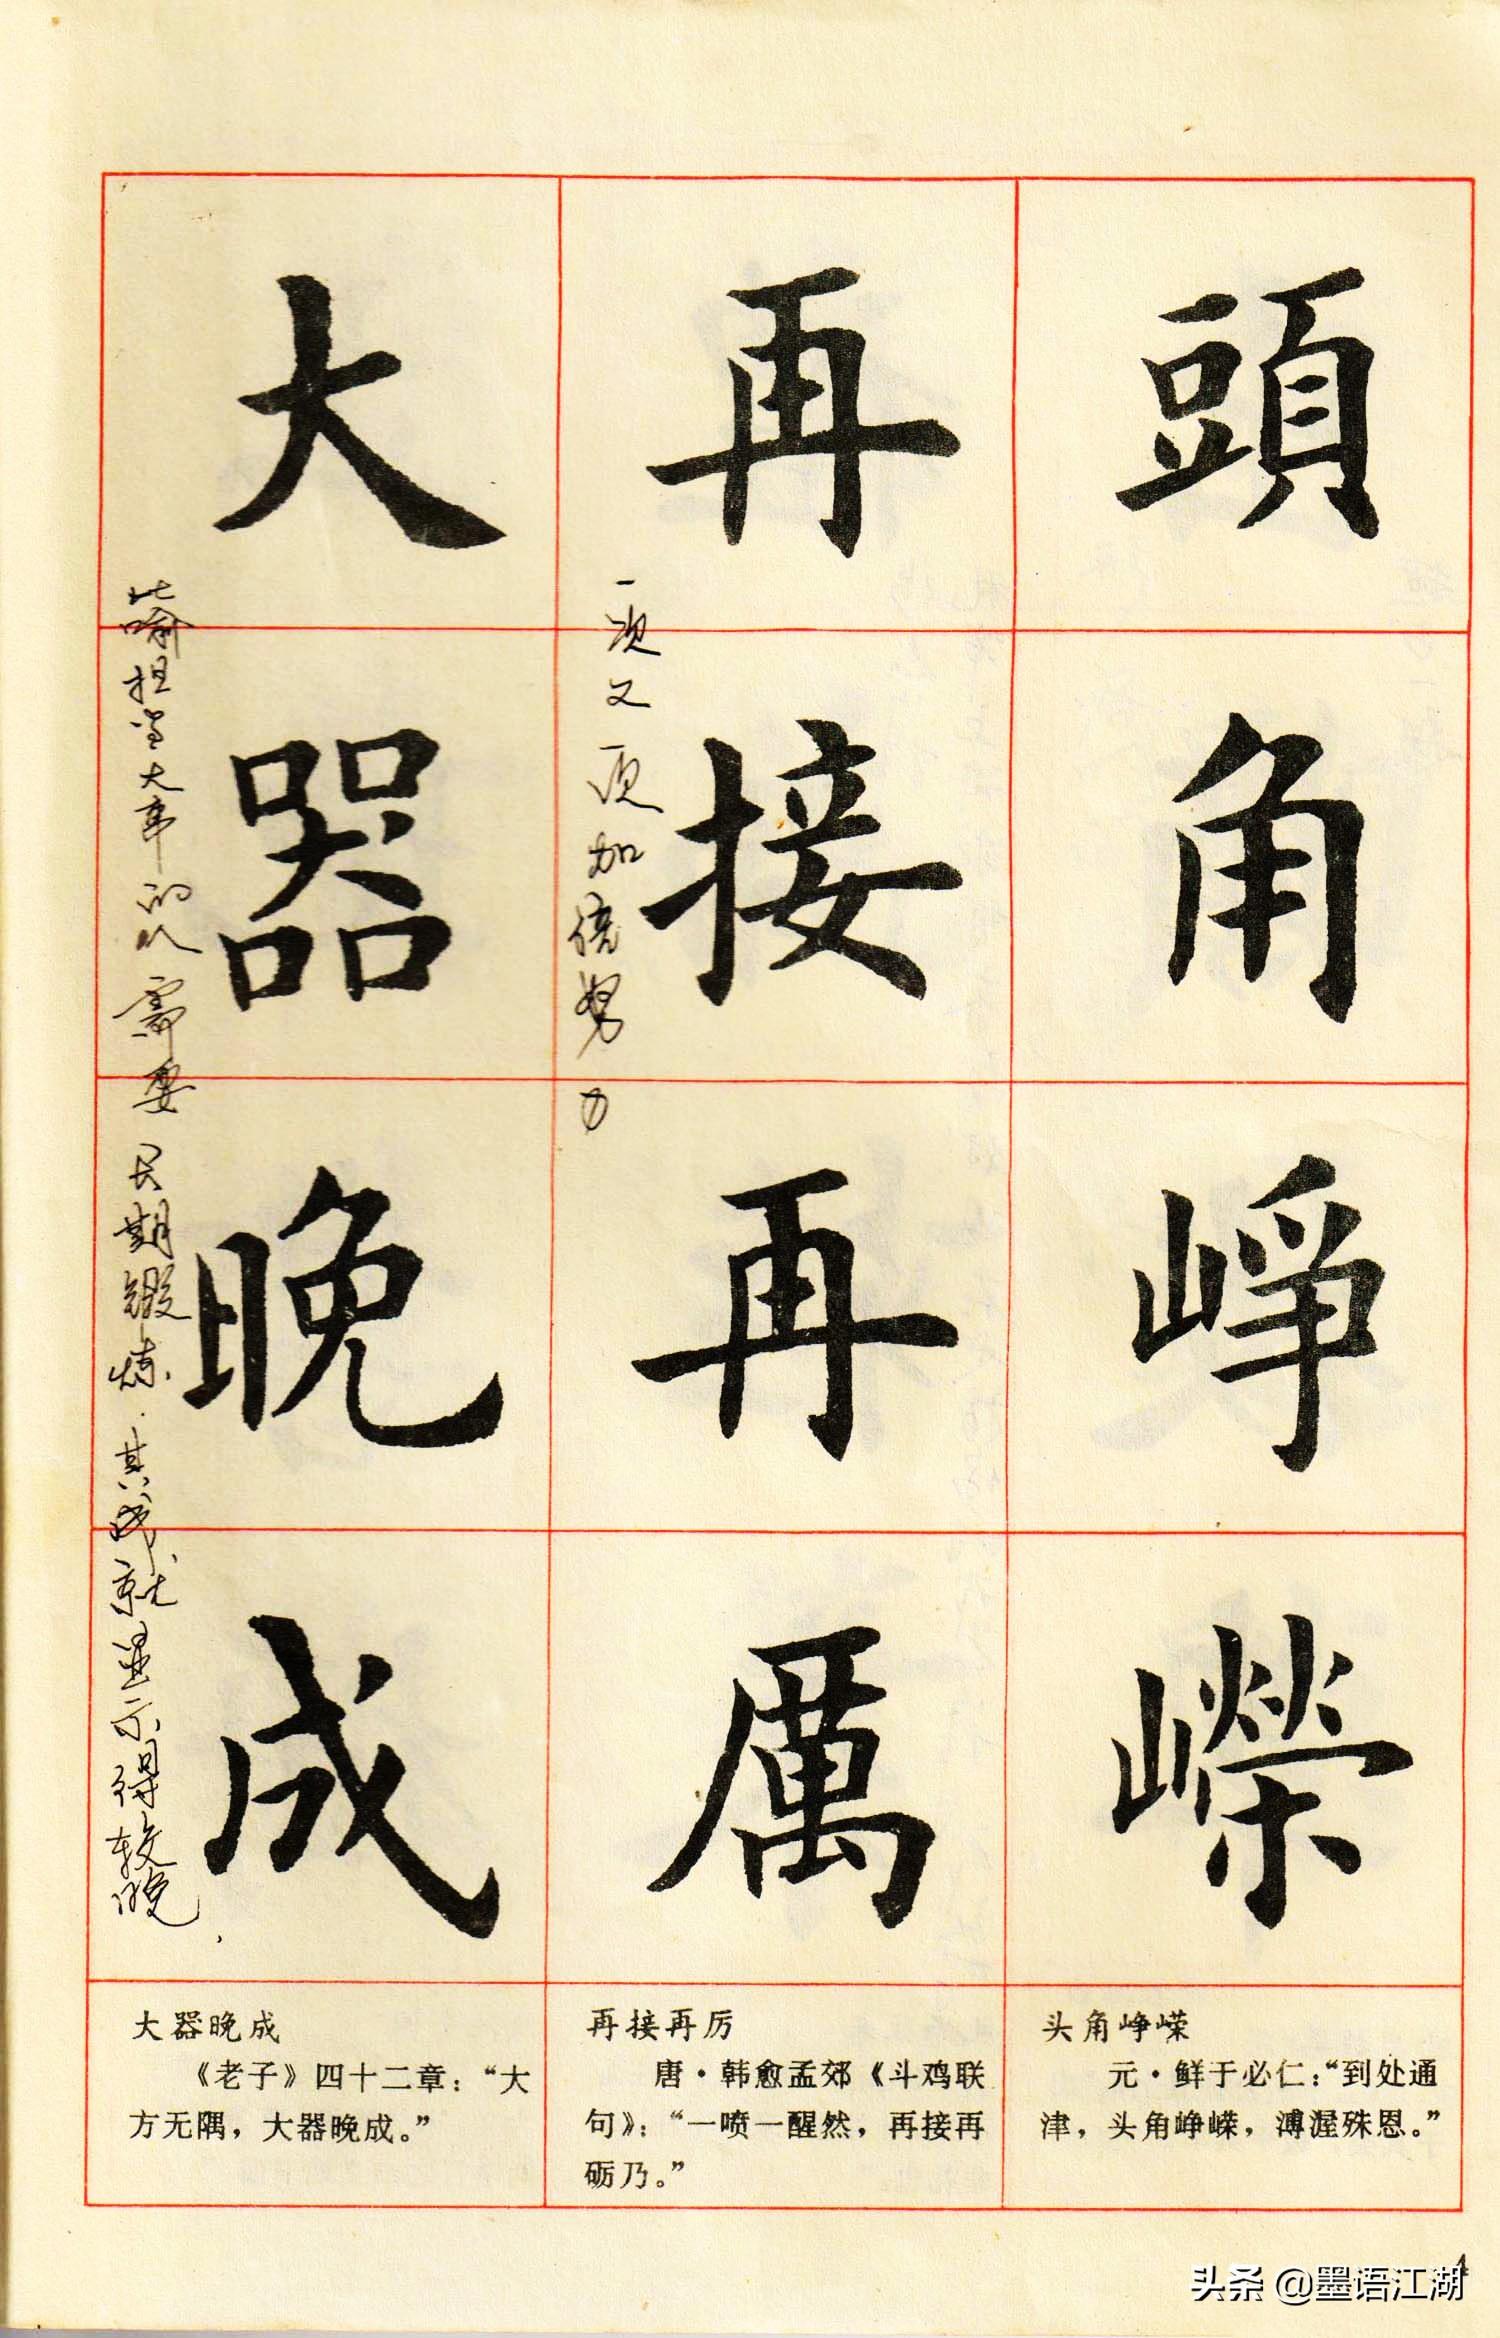 頭角崢嶸
头角峥嵘
元·鲜于必仁：“到处通
津，头角峥嵘，溥渥殊恩。”
再接再厲
一次又一次加倍努力
再接再厉
唐·韩愈孟郊《斗鸡联
句》：“一喷一醒然，再接再
砺乃。”
大器晚成
比喻担当大事的人需要长期锻炼.其成就显示得较晚.
大器晚成
《老子》四十二章：“大
方无隅，大器晚成。”
4
头条 @墨语江湖